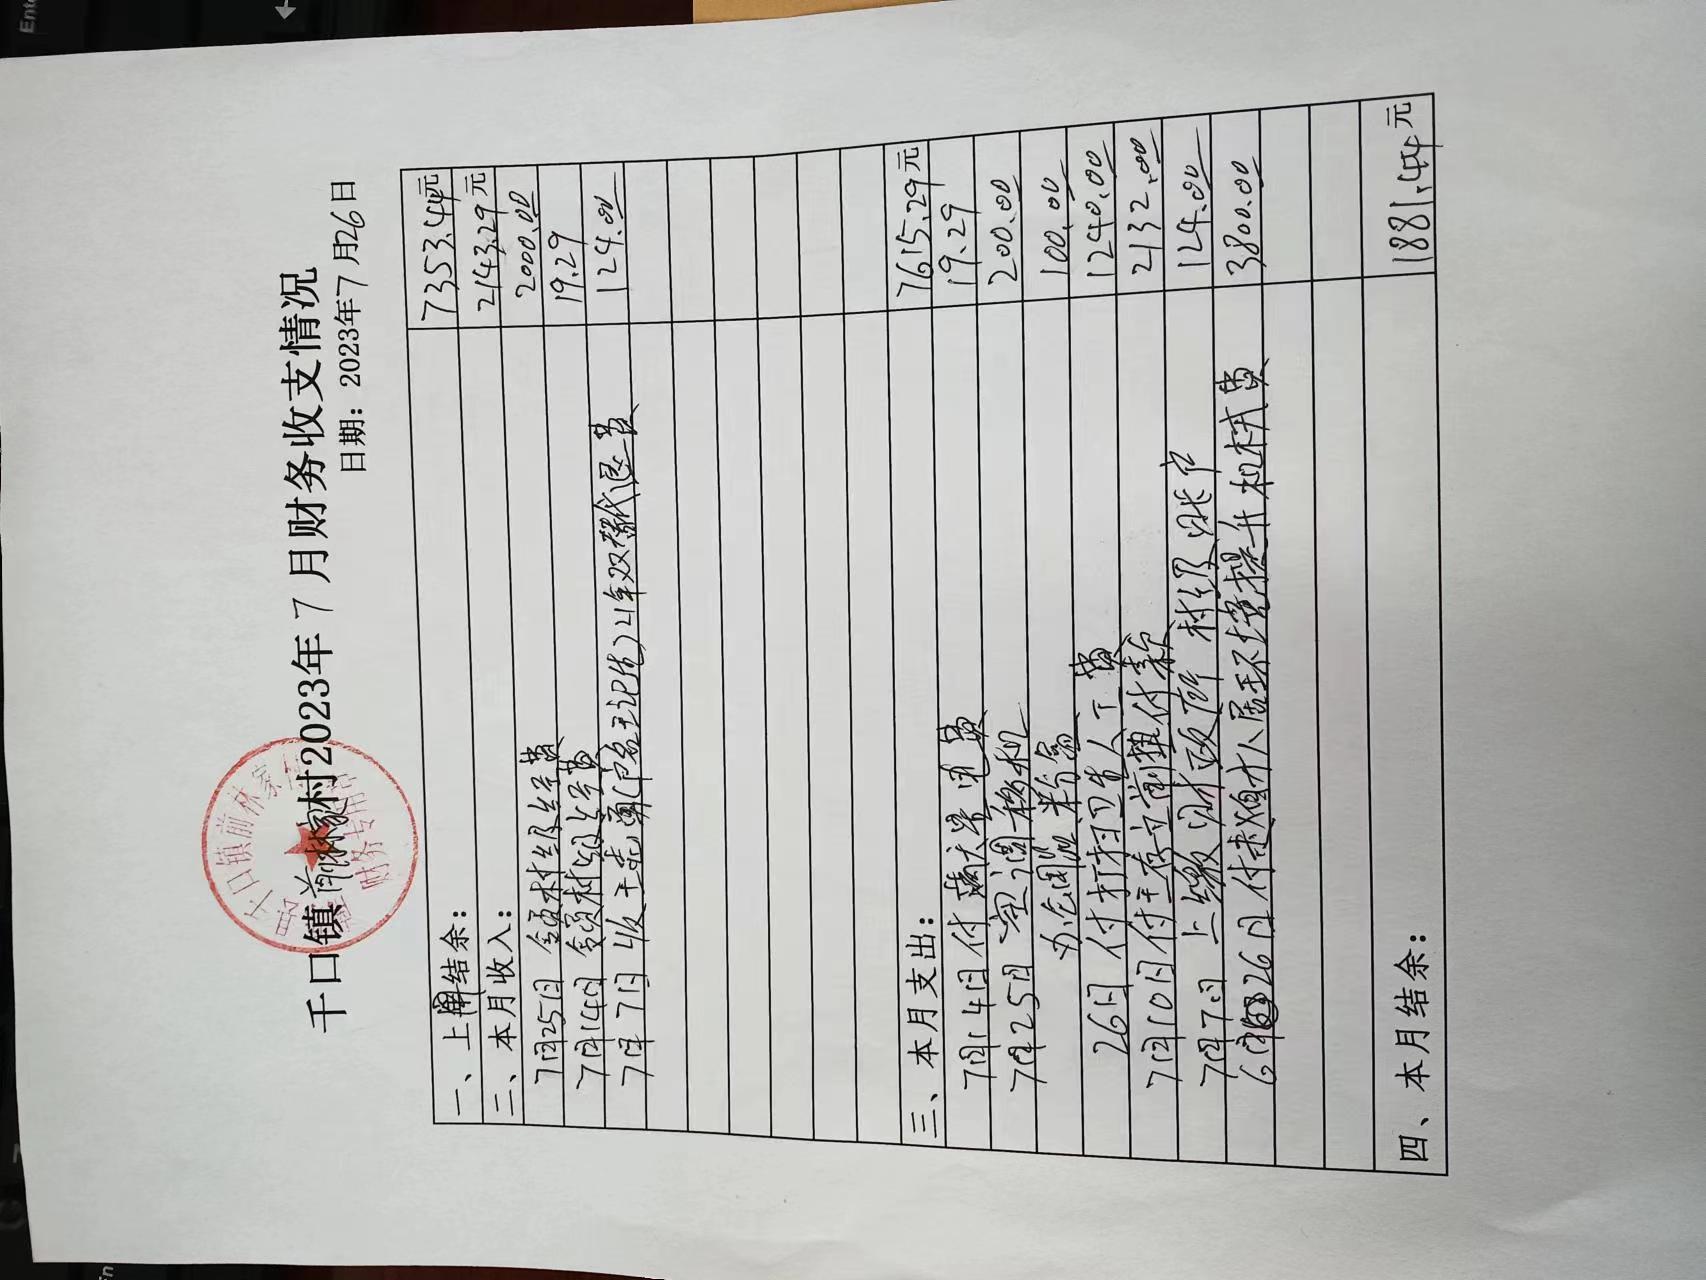 千口镇前林家村2023年7月财务收支情况
县千口镇前林家
财务专用章
日期：2023年7月26日
一、上月结余： 7353.44元
二、本月收入： 2143.29元
7月25日 领村级经费 2000.00
7月14日 领村级经费 19.29
7月7日 收王志勇(户名王记生)21年双替代退费 124.00
三、本月支出： 7615.29元
7月14日 付满天星电费 19.29
7月25日 空调移机 200.00
办公用品 粉盒 100.00
26日 付打扫卫生人工费 1240.00
7月10日付王存立前垫付款 2132.00
7月7日 上缴财政所 村级账户 124.00
6月26日 付人居环境提升机械费 3800.00
四、本月结余： 1881.44元
Ente
En